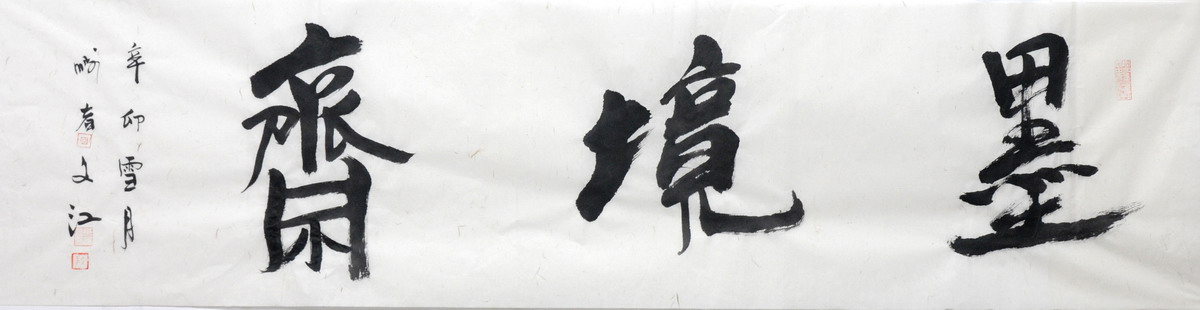 墨境齋
辛卯雪月
春文江